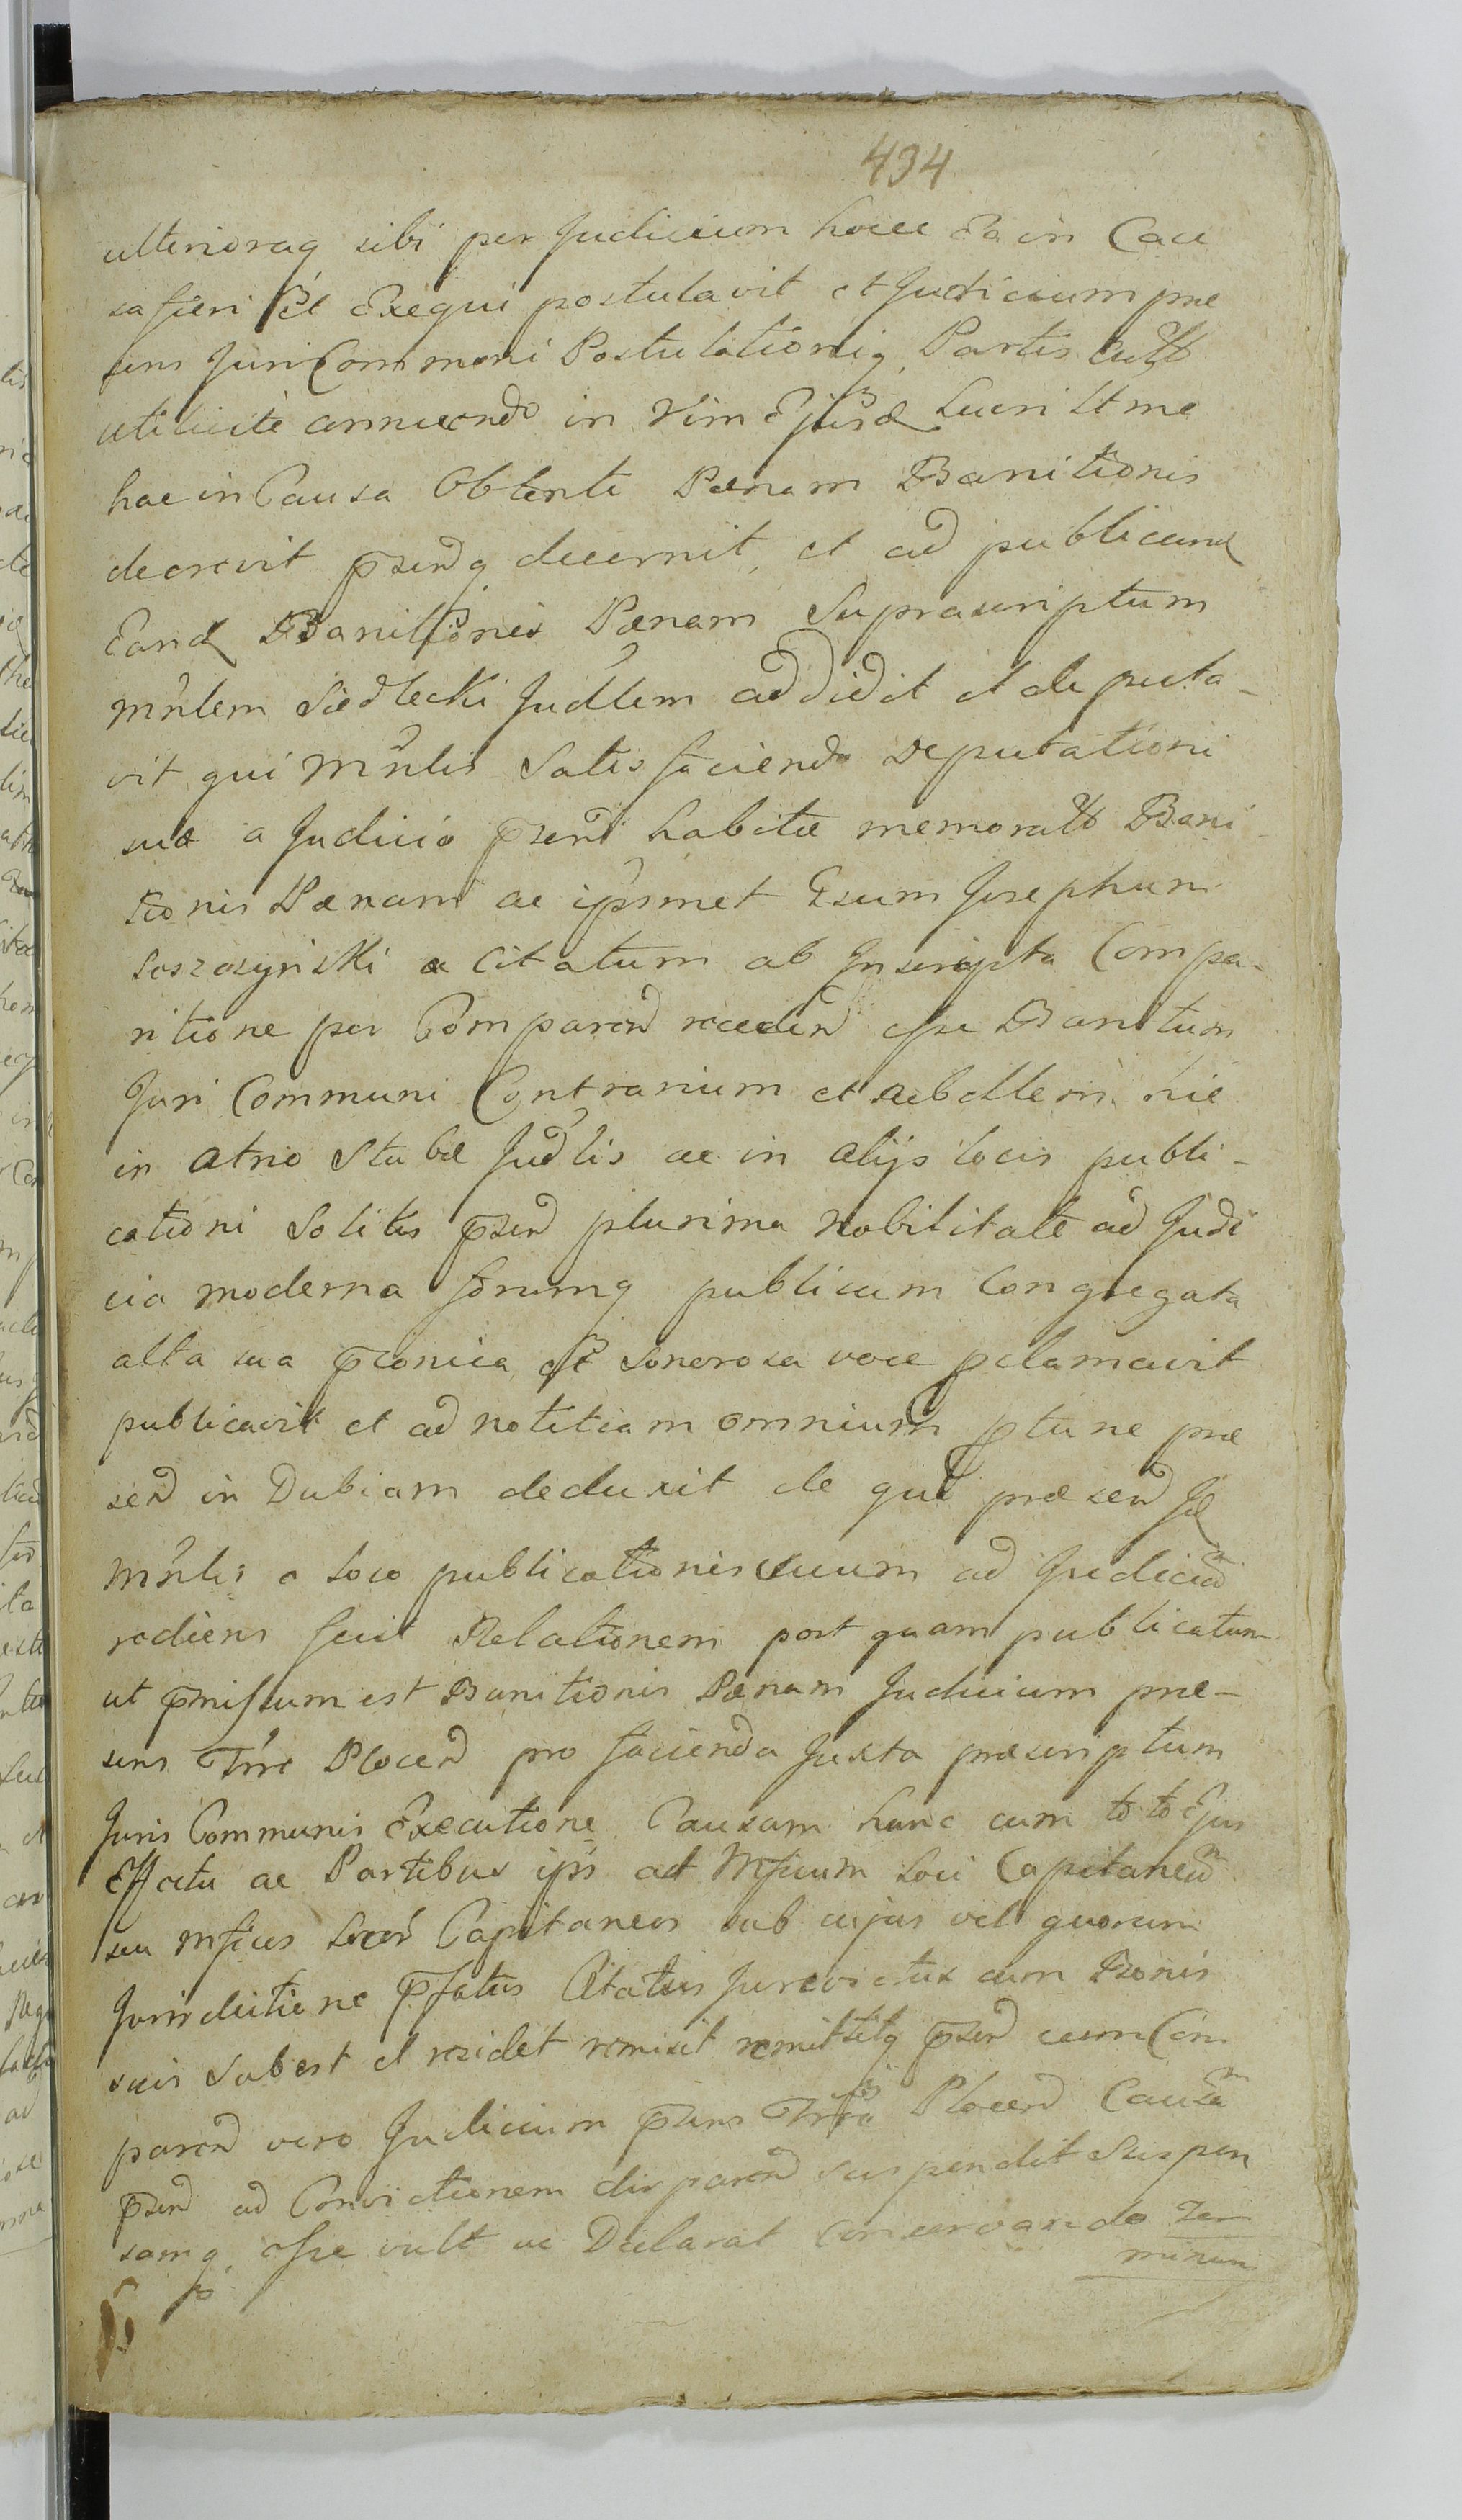 434
ulterioraq sibi per Judicium hocce Ea in Cau
sa fieri Et Exequi postulavit et Judicium præ
sens Juri Communi Postulationiq Partis
uti licite annuendo in Vim Ejusd Lucri
hac in Causa Obtenti Pænam Banitionis
decrevit pzendq decernit, et ad publicand
Eand Banitionis Pænam Suprascriptum
Mnlem Siedlecki Judlem addidit et deputa-
vit qui Mnlis Satisfaciendo Deputationi
suæ a Judicio pzenti habitæ memorattæ Bani
tionis Pænam ac ipsmet Gsum Josephum
Soszczynski a Citatum ab Inscripta Compa-
ritione per Comparend recedend esse Banitum
Juri Communi Contrarium et rebellem hic
in atrio Stubæ Judlis ac in alijs locis publi-
cationi Solitis pzend plurima Nobilitate ad Judi
cia moderna forumq publicum Congregata
alta sua pconica et Sonorosa voce pclamavit
publicavit et ad notitiam omnium ptunc præ
send in Dubiam deduxit de quo præsend Id
Mnlis a loco publicationis suum ad Judicium
rediens fecit Relationem post quam publicatam
ut pmissum est Banitionis Pænam Judicium præ-
sens Trre Plocen pro facienda Juxta præscriptum
Juris Communis Executione Causam hanc cum toto Ejus
Effectu ac Partibus ips ad Mficum Loci Capitaneum
seu Mficos Locor Capitaneos sub cujus vel quorum
Jurisdictione pfatus Citatus Jurevictus cum Bonis
suis Subest et residet remisit remittitq pzend cum Com
parend vero Judicium pzens Trre Plocen Causam
pzend ad Convictionem disparend suspendit Suspen
samq esse vult ac Declarat conservando Ter
minum